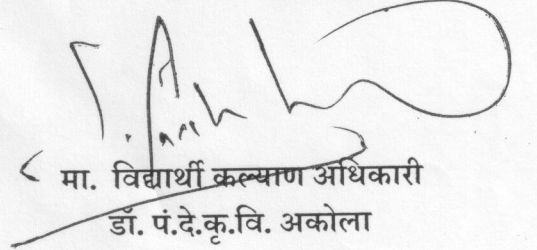 मा. विद्यार्थी कल्याण अधिकारी
डॉ. पं.दे.कृ.वि. अकोला